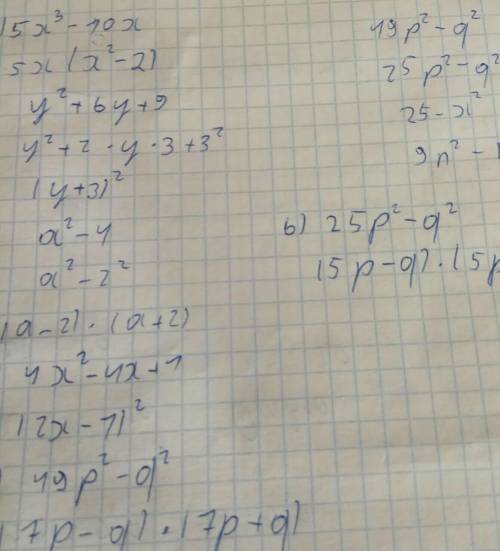 5x³ - 10x
5x (x² - 2)
y² + 6y + 9
y² + 2 · y · 3 + 3²
(y + 3)²
a² - 4
a² - 2²
(a - 2) · (a + 2)
4x² - 4x + 1
(2x - 1)²
49p² - q²
(7p - q) · (7p + q)
49p² - q²
25p² - q²
25 - x²
9n² -
b) 25p² - q²
(5p - q) · (5p